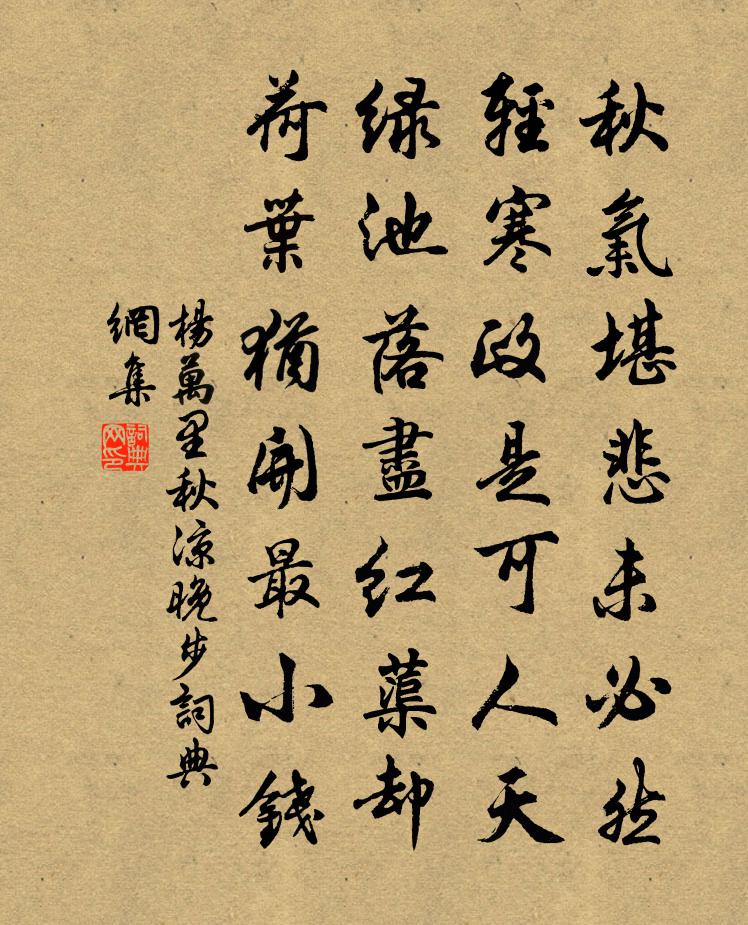 秋氣堪悲未必然
輕寒政是可人天
綠池落盡紅蕖却
荷葉猶開最小錢
楊萬里秋涼晚步詞典
網集
詞典
网印